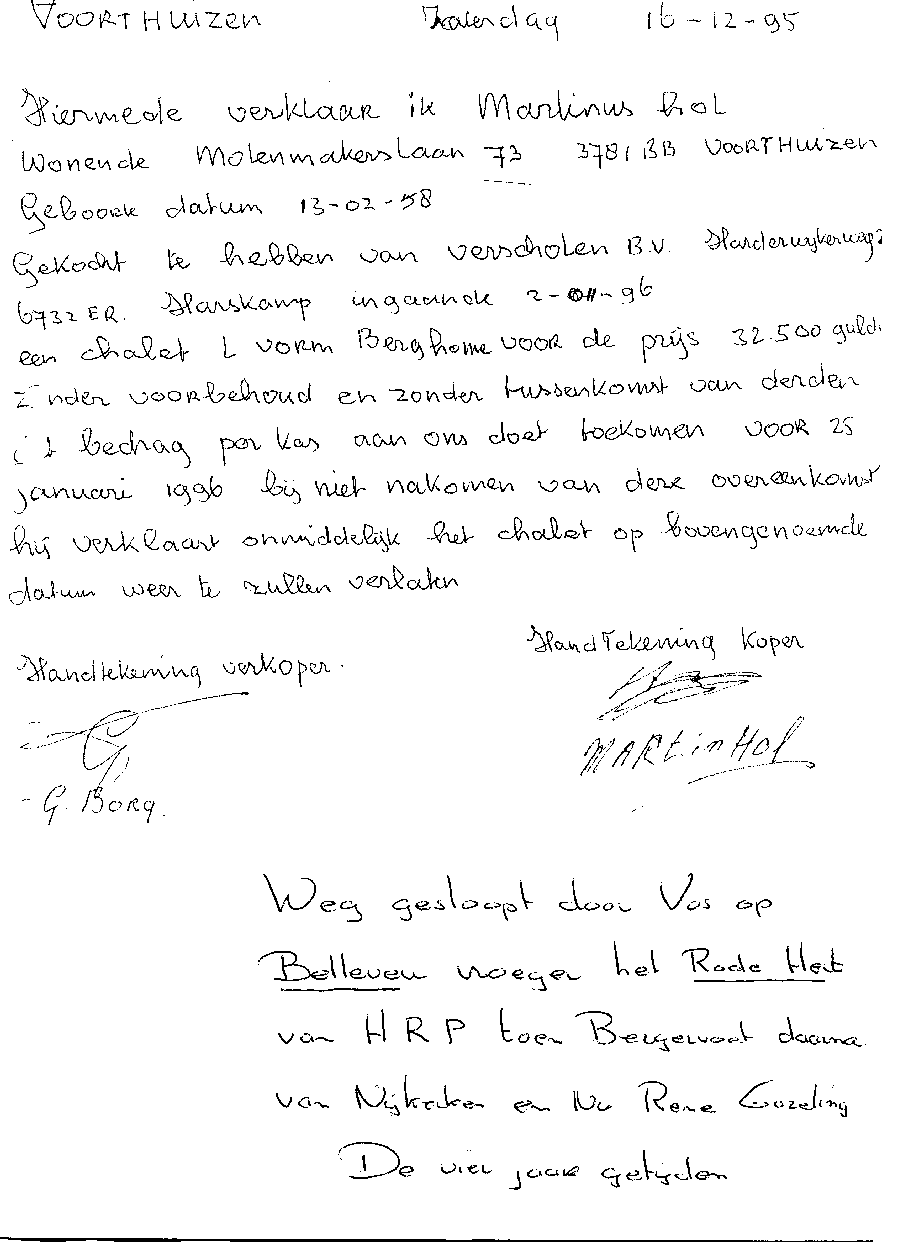 VOORTHUIZEN Zaterdag 16-12-95
Hiermede verklaar ik Martinus Hol
Wonende Molenmakerslaan 73 3781 BB VOORTHUIZEN
Geboorte datum 13-02-58
Gekocht te hebben van verscholen B.V. Harderwijkerweg
6732 ER. Harskamp ingaande 2-01-96
een chalet L vorm Berghome VOOR de prijs 32.500 guld.
Zonder voorbehoud en zonder tussenkomst van derden
bedrag per kas aan ons doet toekomen VOOR 25
januari 1996 bij niet nakomen van deze overeenkomst
hij verklaart onmiddelijk het chalet op bovengenoemde
datum weer te zullen verlaten
Handtekening verkoper.
Handtekening Koper
G. Borg.
MARtin Hol
Weg gesloopt door Vos op
Belleven vroeger het Rode Hert
van HRP toen Bergervoet daarna
van Nijkerken en Nu Rene Gozeling
De vier jaar getijden